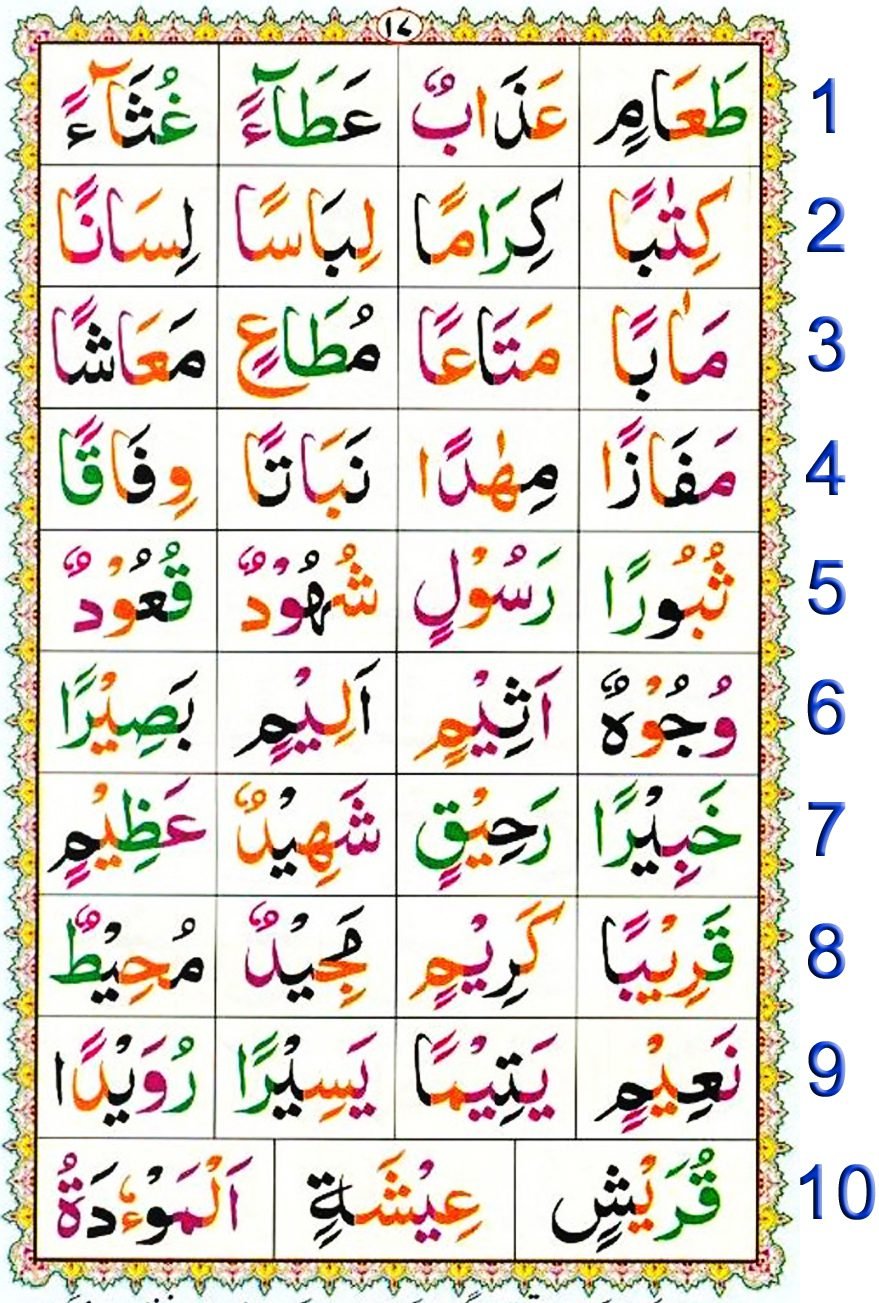 ١٤
طَعَامٍ عَذَابٌ عَطَآءً غُثَآءً 1
كِتٰبًا كِرَامًا لِبَاسًا لِسَانًا 2
مَاٰبًا مَتَاعًا مُطَاعٍ مَعَاشًا 3
مَفَازًا مِهٰدًا نَبَاتًا وِفَاقًا 4
ثُبُورًا رَسُوْلٍ شُهُوْدٌ قُعُوْدٌ 5
وُجُوْهٌ اَثِيْمٍ اَلِيْمٍ بَصِيْرًا 6
خَبِيْرًا رَحِيْقٍ شَهِيْدٌ عَظِيْمٍ 7
قَرِيْبًا كَرِيْمٍ مَجِيْدٌ مُحِيْطٌ 8
نَعِيْمٍ يَتِيْمًا يَسِيْرًا رُوَيْدًا 9
قُرَيْشٍ عِيْشَةٍ اَلْمَوْءٗدَةُ 10